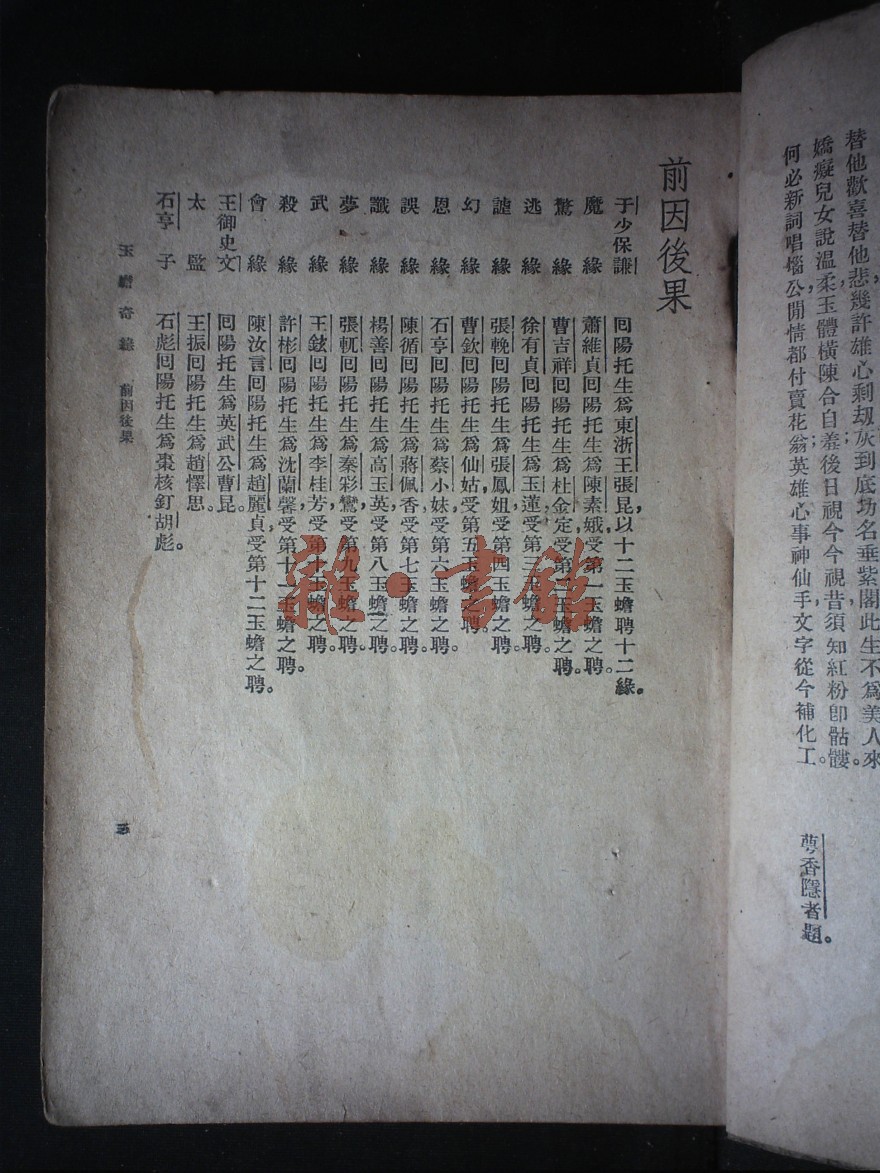 替他歡喜替他悲幾許雄心剩刧灰到底功名垂紫閣此生不爲美人來
嬌癡兒女說温柔玉體橫陳合自羞後日視今今視昔須知紅粉卽骷髏。
何必新詞唱惱公閒情都付賣花翁英雄心事神仙手文字從今補化工。
蕚香隱者題。
前因後果
于少保謙　囘陽托生爲東浙王張昆,以十二玉蟾聘十二緣。
魔　緣　蕭維貞囘陽托生爲陳素娥,受第一玉蟾之聘。
驚　緣　曹吉祥囘陽托生爲杜金定,受第二玉蟾之聘。
逃　緣　徐有貞囘陽托生爲玉蓮,受第三玉蟾之聘。
謔　緣　張輗囘陽托生爲張鳳姐,受第四玉蟾之聘。
幻　緣　曹欽囘陽托生爲仙姑,受第五玉蟾之聘。
恩　緣　石亨囘陽托生爲蔡小妹,受第六玉蟾之聘。
誤　緣　陳循囘陽托生爲蔣佩香,受第七玉蟾之聘。
讖　緣　楊善囘陽托生爲高玉英,受第八玉蟾之聘。
夢　緣　張軏囘陽托生爲秦彩鸞,受第九玉蟾之聘。
武　緣　王鉉囘陽托生爲李桂芳,受第十玉蟾之聘。
殺　緣　許彬囘陽托生爲沈蘭馨,受第十一玉蟾之聘。
會　緣　陳汝言囘陽托生爲趙麗貞,受第十二玉蟾之聘。
王御史文　囘陽托生爲英武公曹昆。
太　監　王振囘陽托生爲趙懌思。
石亨　子　石彪囘陽托生爲棗核釘胡彪。
玉蟾奇緣　前因後果
三
雜·書館